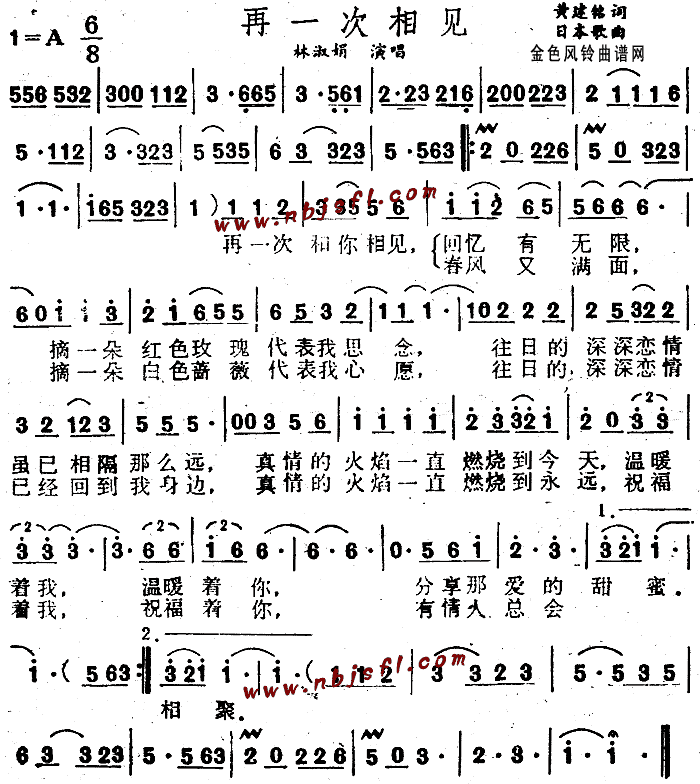 再一次相见
1=A 6/8
黄建铭 词
日本歌曲
林淑娟 演唱
金色风铃曲谱网
556 532 | 300 112 | 3 · 665 | 3 · 561 | 2·23 216 | 200 223 | 2 1 1 1 6
5 · 112 | 3 · 323 | 5 535 | 6 3 323 | 5 · 563 |: 2 0 226 | 5 0 323
1 · 1 · | 165 323 | 1 ) 1 1 2 | 3 35 5 6 | 1 1 2 6 5 | 5 6 6 6 ·
www.nbjsfl.com
再一次 和你相见，{回忆 有 无 限，
春风 又 满 面，
6 0 1 1 · 3 | 2 1 6 5 5 | 6 5 3 2 | 1 1 1 · | 1 0 2 2 2 | 2 5 3 2 2
摘一朵 红色玫 瑰 代表我思 念， 往日的 深深恋情
摘一朵 白色蔷 薇 代表我心 愿， 往日的 深深恋情
3 2 1 2 3 | 5 5 5 · | 0 0 3 5 6 | 1 1 1 1 | 2 3 3 2 1 | 2 0 3 3
虽已相隔那么远， 真情的火焰一直 燃烧到今 天，温暖
已经回到我身边， 真情的火焰一直 燃烧到永 远，祝福
3 3 3 · | 3 · 6 6 | 1 6 6 6 · | 6 · 6 · | 0 · 5 6 1 | 2 · 3 · | 3 2 1 1 ·
1.
着我， 温暖 着 你， 分享那 爱 的 甜 蜜．
着我， 祝福 着 你， 有情人 总 会
2.
1 · ( 5 63 :| 3 2 1 1 · | 1 · ( 1 1 2 | 3 3 2 3 | 5 · 5 3 5
www.nbjsfl.com
相 聚．
6 3 323 | 5 · 565 | 2 0 226 | 5 · 3 3 | 2 · 3 · | 1 · 1 ·